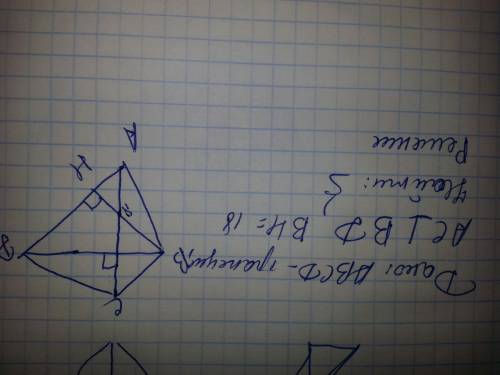 Дано: ABCD - трапеция,
AC ⊥ BD BH = 18
Найти: S
Решение
A
H
B
C
D
18